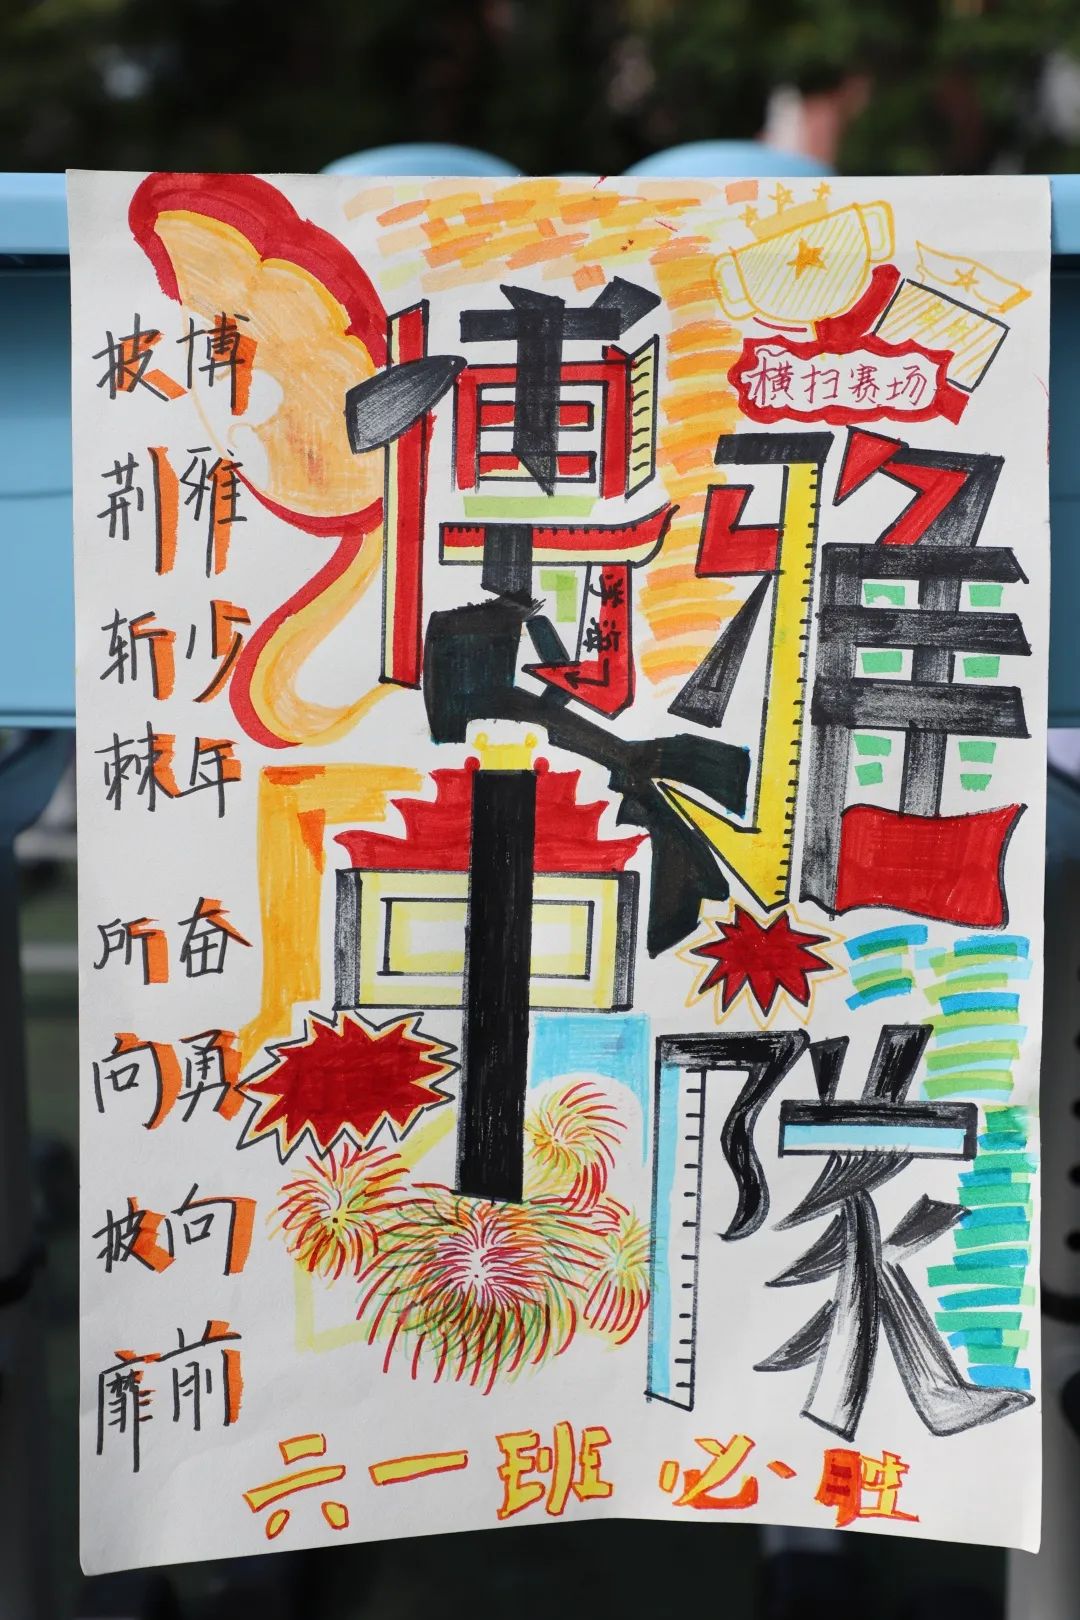 横扫赛场
博雅
中隊
博雅少年 奋勇向前
披荆斩棘 所向披靡
六一班必胜